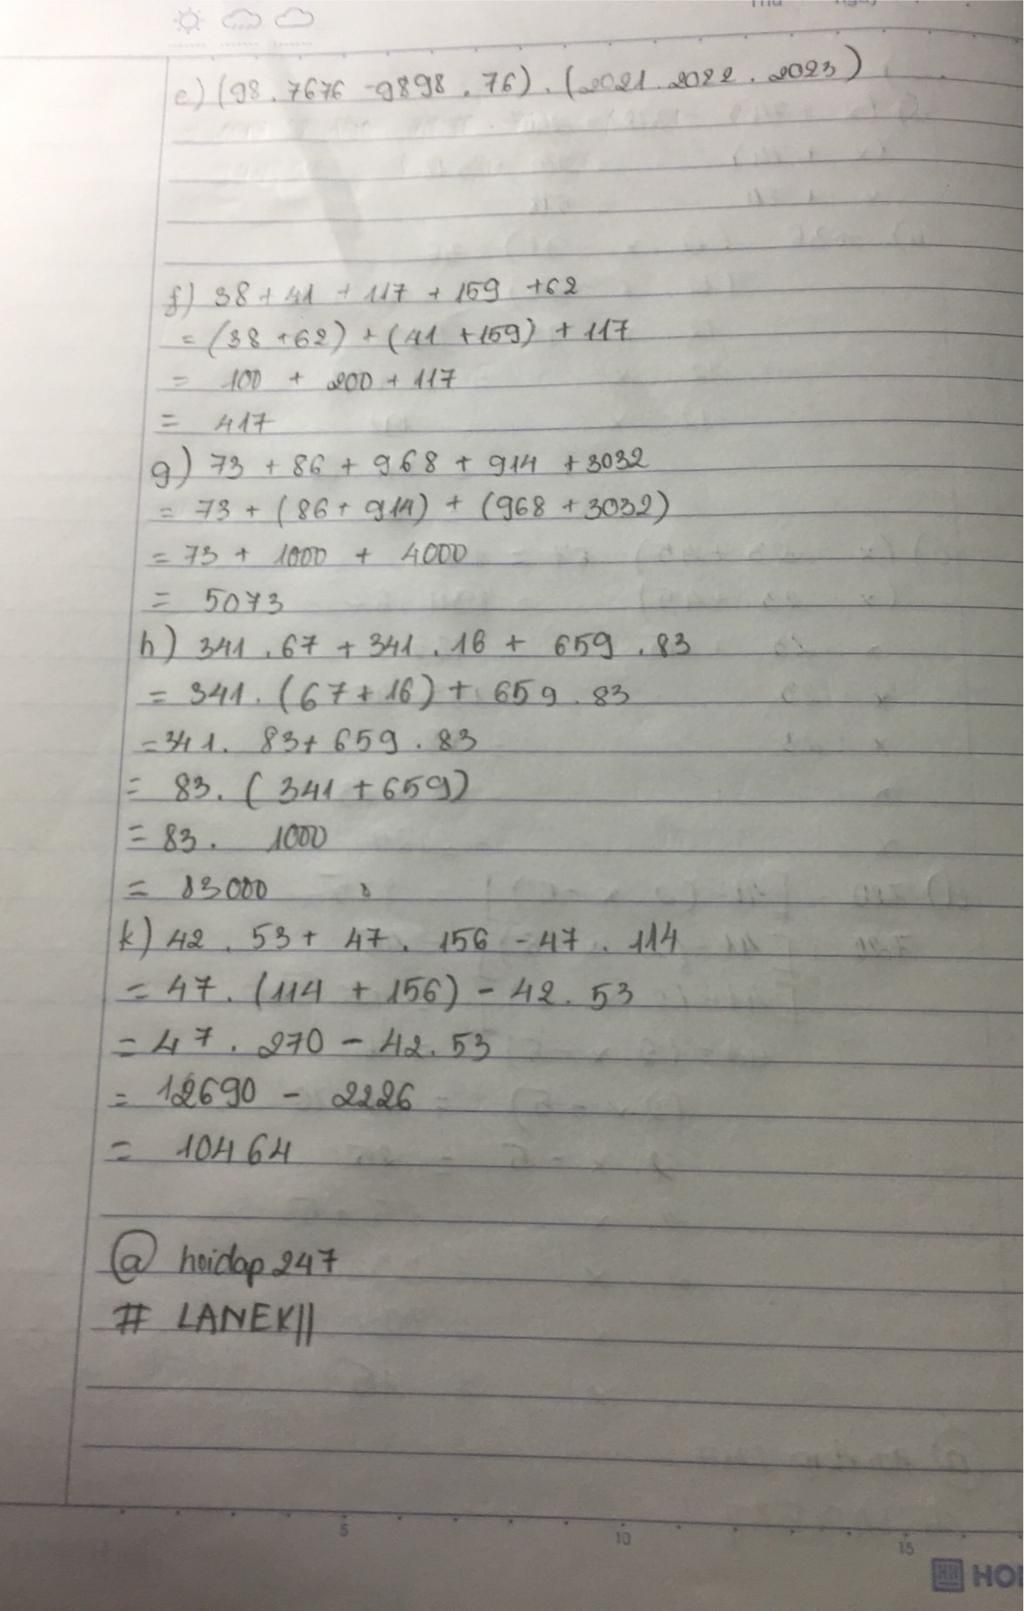 e) (98.7676 - 9898.76).(2021.2022.2023)
f) 38 + 41 + 117 + 159 + 62
= (38 + 62) + (41 + 159) + 117
= 100 + 200 + 117
= 417
g) 73 + 86 + 968 + 914 + 3032
= 73 + (86 + 914) + (968 + 3032)
= 73 + 1000 + 4000
= 5073
h) 341.67 + 341.16 + 659.83
= 341.(67 + 16) + 659.83
= 341.83 + 659.83
= 83.(341 + 659)
= 83. 1000
= 83000
k) 42.53 + 47.156 - 47.114
= 47.(114 + 156) - 42.53
= 47.270 - 42.53
= 12690 - 2226
= 10464
@ hoidap247
# LANEK||
5 10 15